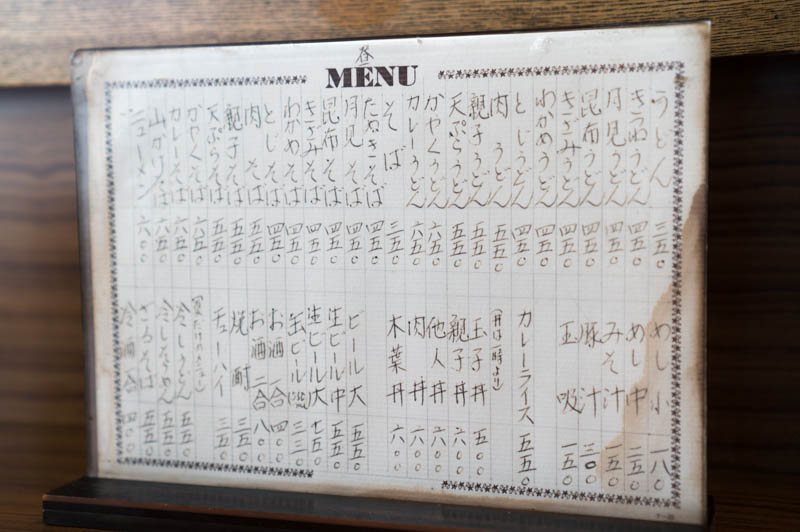 昼
MENU
うどん 三五〇
きつねうどん 四五〇
月見うどん 四五〇
昆布うどん 四五〇
きざみうどん 四五〇
わかめうどん 四五〇
とじうどん 四五〇
肉うどん 五五〇
親子うどん 五五〇
天ぷらうどん 五五〇
かやくうどん 六五〇
カレーうどん 六五〇
そば 三五〇
たぬきそば 四五〇
月見そば 四五〇
昆布そば 四五〇
きざみそば 四五〇
わかめそば 四五〇
とじそば 四五〇
肉そば 五五〇
親子そば 五五〇
天ぷらそば 五五〇
かやくそば 六五〇
カレーそば 六五〇
山かけそば 六五〇
ニューメン 六〇〇
めし小 一八〇
めし中 二五〇
みそ汁 一五〇
豚汁 三〇〇
玉吸 一五〇
カレーライス 五五〇
(丼は一時より)
玉子丼 五〇〇
親子丼 六〇〇
他人丼 六〇〇
肉丼 六〇〇
木葉丼 六〇〇
ビール大 五五〇
生ビール中 五五〇
生ビール大 七五〇
缶ビール 三三〇
お酒一合 四〇〇
お酒二合 八〇〇
焼酎 三五〇
チューハイ 三五〇
(夏だけのメニュー)
冷しうどん 五五〇
冷しそうめん 五五〇
ざるそば 五五〇
冷酒一合 四〇〇